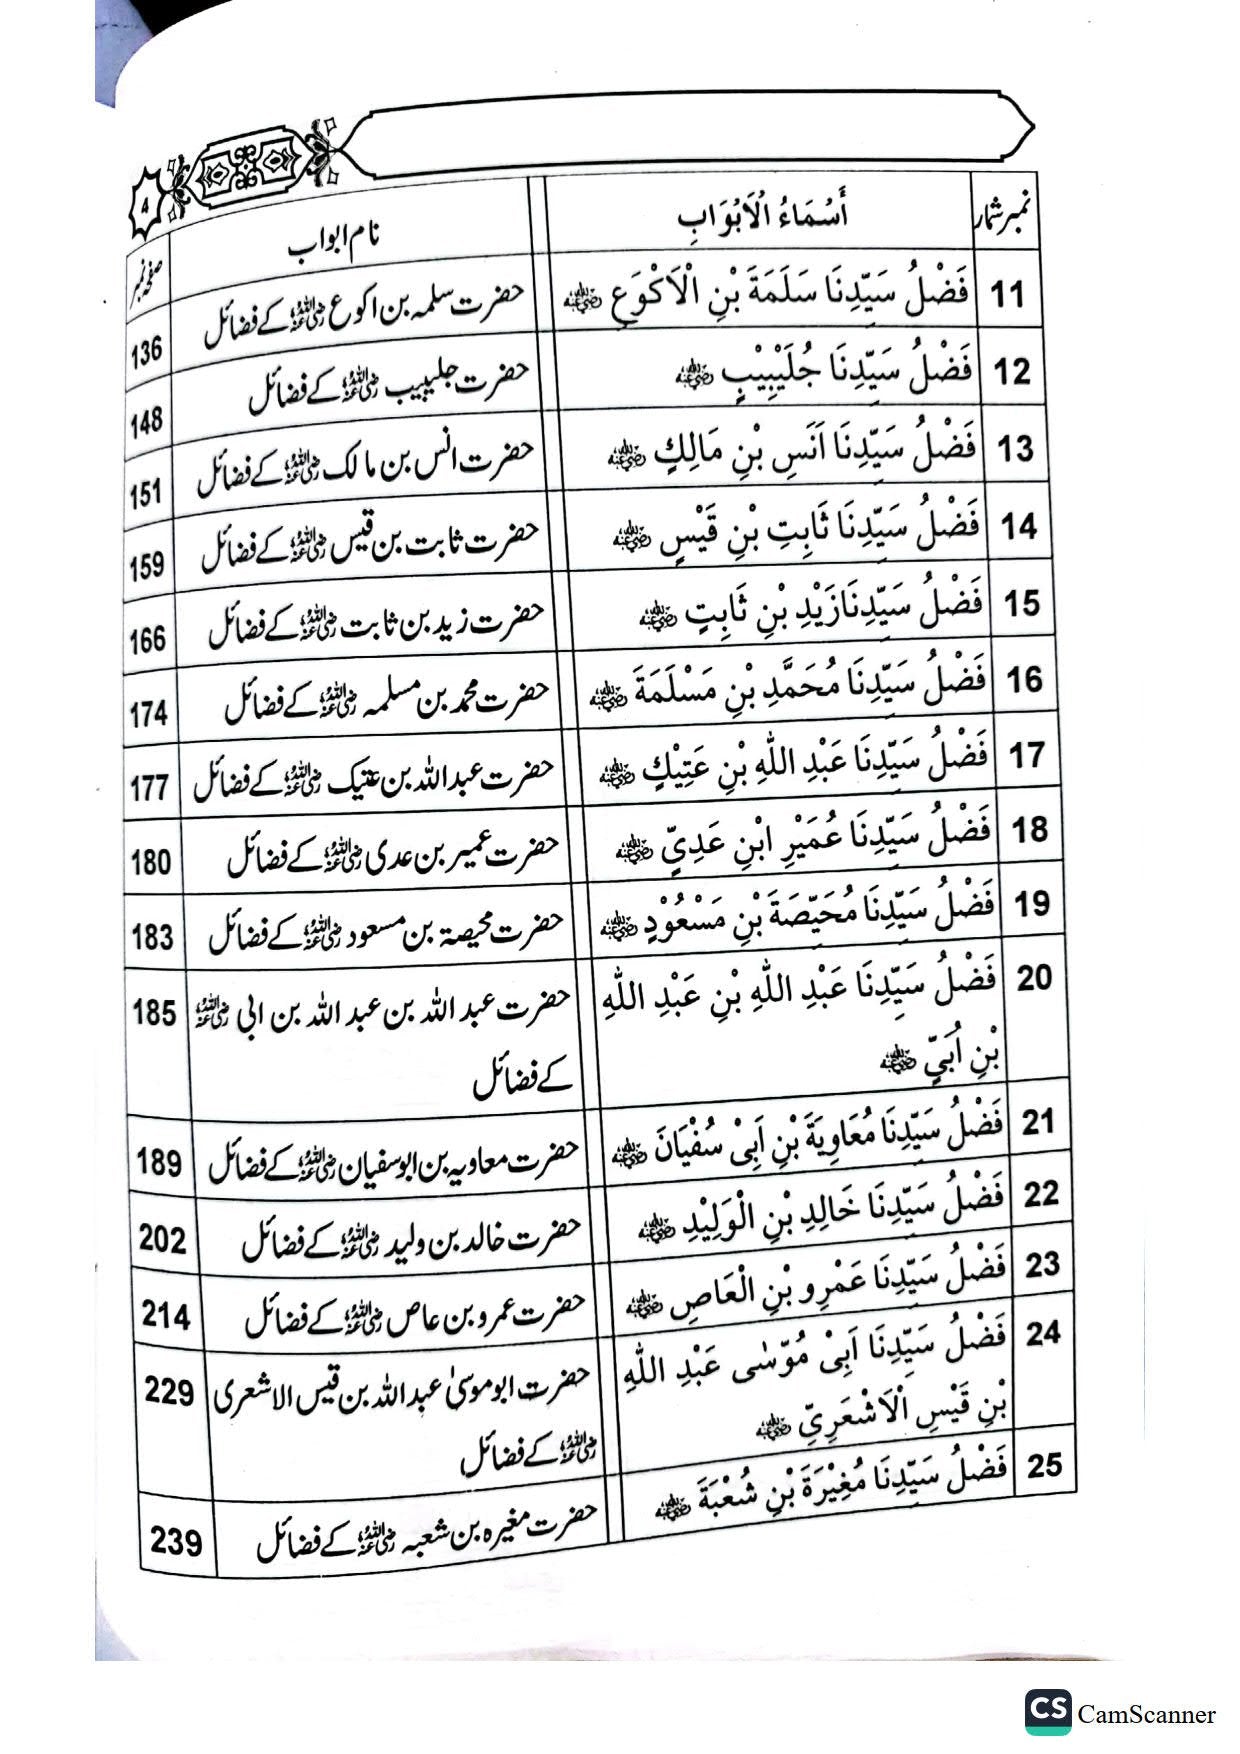 4
نمبر شمار أَسْمَاءُ الْاَبْوَابِ نام ابواب صفحہ نمبر
11 فَضْلُ سَيِّدِنَا سَلَمَةَ بْنِ الْاَكْوَعِ رضی اللہ عنہ حضرت سلمہ بن اکوع رضی اللہ عنہ کے فضائل 136
12 فَضْلُ سَيِّدِنَا جُلَيْبِيْبٍ رضی اللہ عنہ حضرت جلیبیب رضی اللہ عنہ کے فضائل 148
13 فَضْلُ سَيِّدِنَا اَنَسِ بْنِ مَالِكٍ رضی اللہ عنہ حضرت انس بن مالک رضی اللہ عنہ کے فضائل 151
14 فَضْلُ سَيِّدِنَا ثَابِتِ بْنِ قَيْسٍ رضی اللہ عنہ حضرت ثابت بن قیس رضی اللہ عنہ کے فضائل 159
15 فَضْلُ سَيِّدِنَا زَيْدِ بْنِ ثَابِتٍ رضی اللہ عنہ حضرت زید بن ثابت رضی اللہ عنہ کے فضائل 166
16 فَضْلُ سَيِّدِنَا مُحَمَّدِ بْنِ مَسْلَمَةَ رضی اللہ عنہ حضرت محمد بن مسلمہ رضی اللہ عنہ کے فضائل 174
17 فَضْلُ سَيِّدِنَا عَبْدِ اللّٰهِ بْنِ عَتِيْكٍ رضی اللہ عنہ حضرت عبداللہ بن عتیک رضی اللہ عنہ کے فضائل 177
18 فَضْلُ سَيِّدِنَا عُمَيْرِ ابْنِ عَدِيٍّ رضی اللہ عنہ حضرت عمیر بن عدی رضی اللہ عنہ کے فضائل 180
19 فَضْلُ سَيِّدِنَا مُحَيِّصَةَ بْنِ مَسْعُوْدٍ رضی اللہ عنہ حضرت محیصۃ بن مسعود رضی اللہ عنہ کے فضائل 183
20 فَضْلُ سَيِّدِنَا عَبْدِ اللّٰهِ بْنِ عَبْدِ اللّٰهِ حضرت عبد اللہ بن عبد اللہ بن ابی رضی اللہ عنہ 185
بْنِ اُبَيٍّ رضی اللہ عنہ کے فضائل
21 فَضْلُ سَيِّدِنَا مُعَاوِيَةَ بْنِ اَبِىْ سُفْيَانَ رضی اللہ عنہ حضرت معاویہ بن ابوسفیان رضی اللہ عنہ کے فضائل 189
22 فَضْلُ سَيِّدِنَا خَالِدِ بْنِ الْوَلِيْدِ رضی اللہ عنہ حضرت خالد بن ولید رضی اللہ عنہ کے فضائل 202
23 فَضْلُ سَيِّدِنَا عَمْرِو بْنِ الْعَاصِ رضی اللہ عنہ حضرت عمرو بن عاص رضی اللہ عنہ کے فضائل 214
24 فَضْلُ سَيِّدِنَا اَبِىْ مُوْسٰى عَبْدِ اللّٰهِ حضرت ابو موسیٰ عبداللہ بن قیس الاشعری 229
بْنِ قَيْسِ الْاَشْعَرِيِّ رضی اللہ عنہ رضی اللہ عنہ کے فضائل
25 فَضْلُ سَيِّدِنَا مُغِيْرَةَ بْنِ شُعْبَةَ رضی اللہ عنہ حضرت مغیرہ بن شعبہ رضی اللہ عنہ کے فضائل 239
CS CamScanner